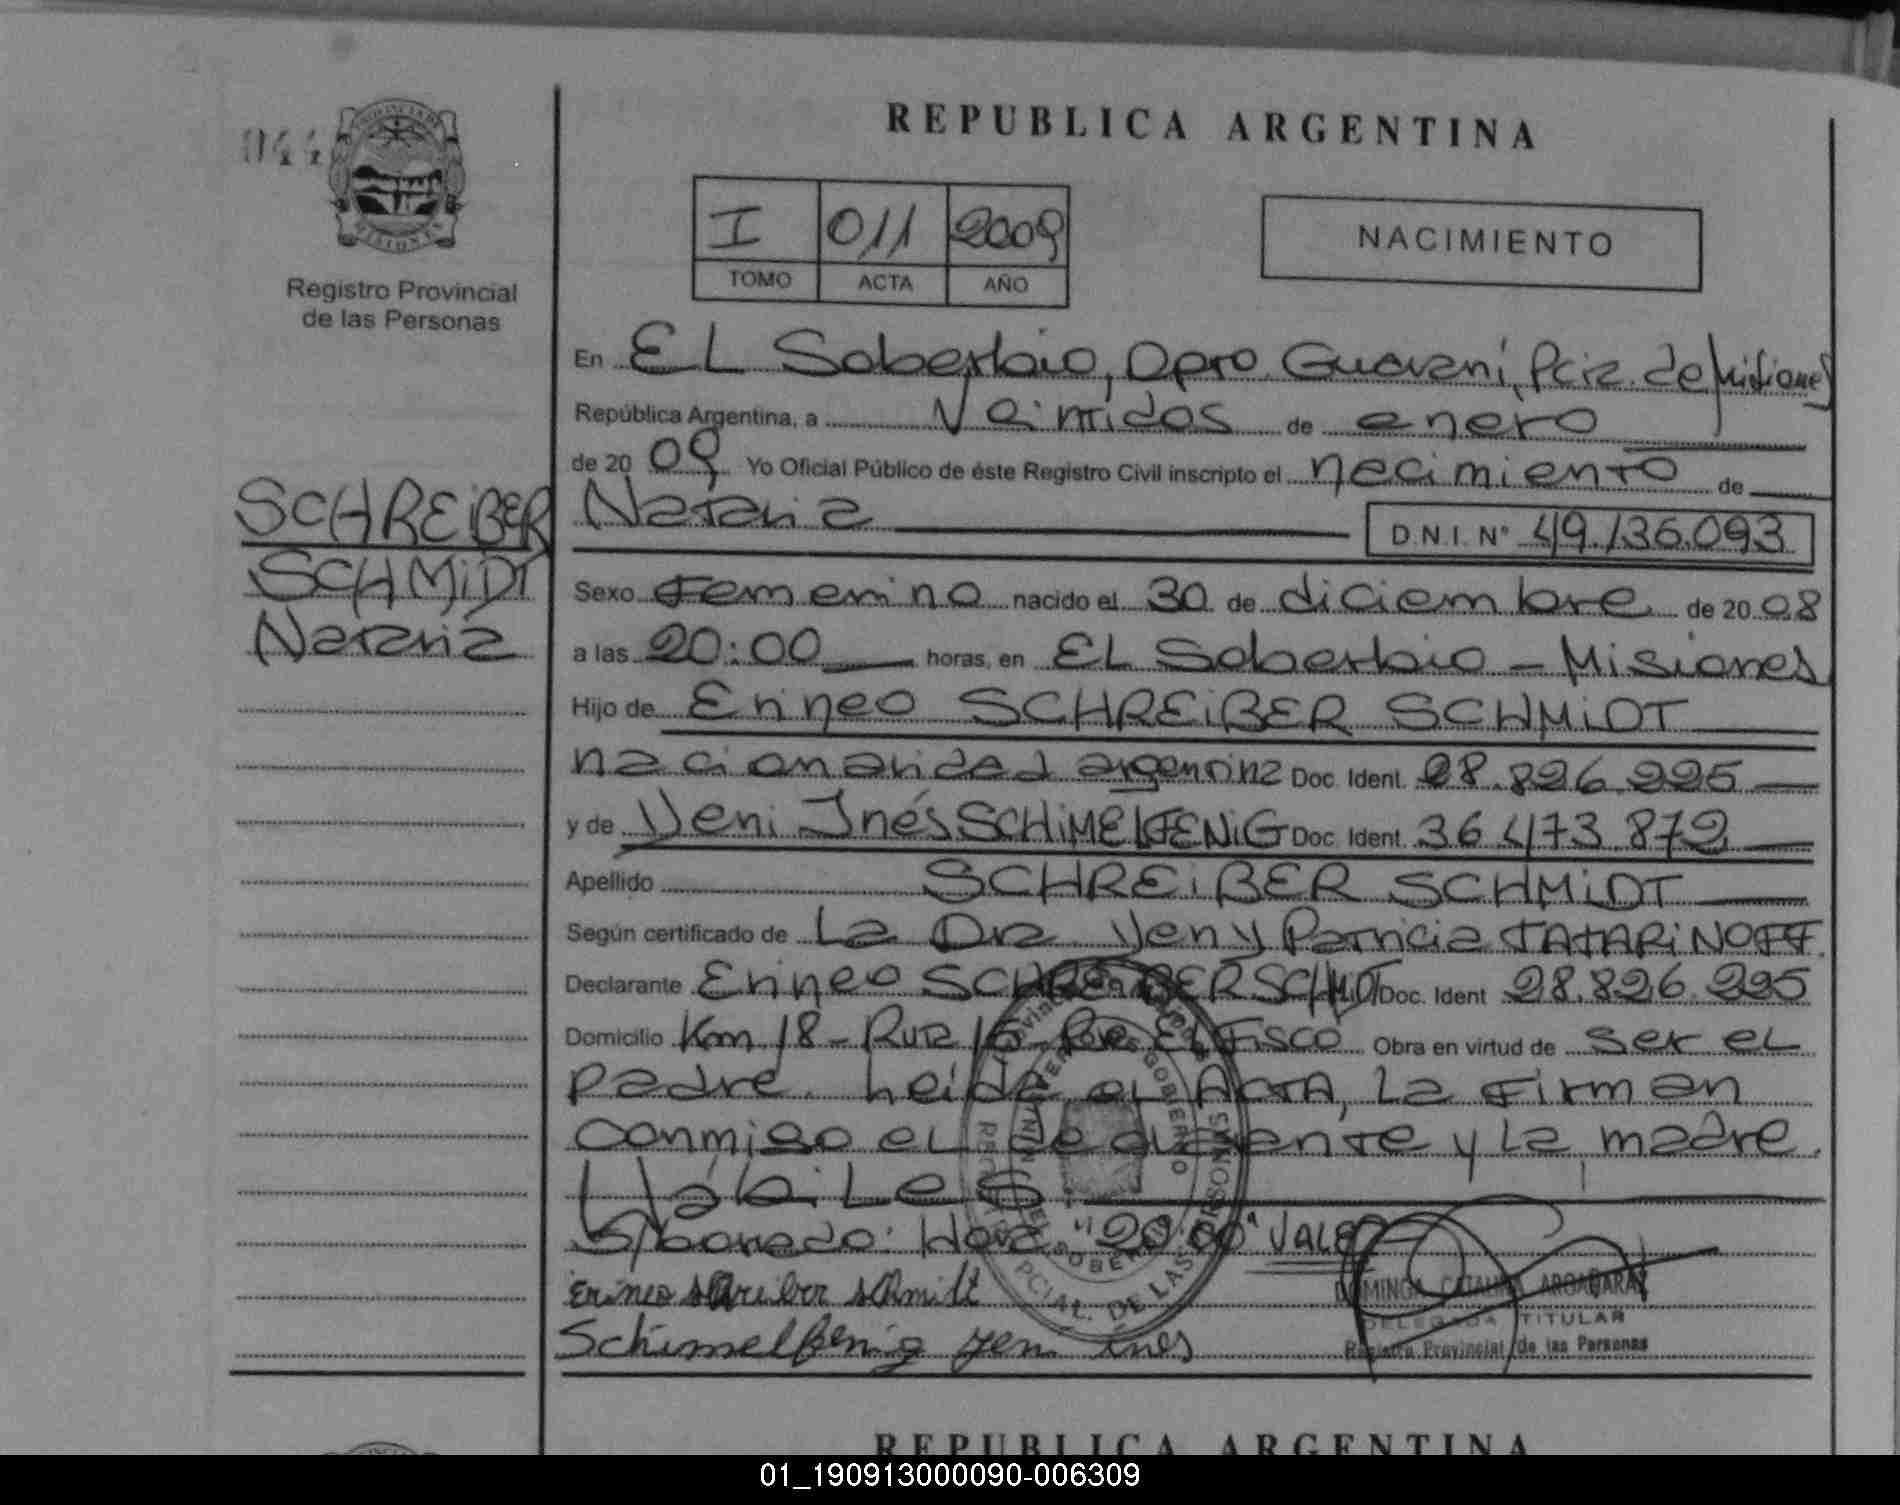 044
PROVINCIA DE
MISIONES
Registro Provincial
de las Personas
SCHREiBER
SCHMiDT
Natalia
REPUBLICA ARGENTINA
I 011 2009
TOMO ACTA AÑO
NACIMIENTO
En EL Soberbio, Dpto. Guaraní, Pcia. de Misiones
República Argentina, a Veintidos de enero
de 2009 Yo Oficial Público de éste Registro Civil inscripto el nacimiento de
Natalia D.N.I. N° 49.136.093
Sexo Femenino nacido el 30 de diciembre de 2008
a las 20:00 horas, en EL Soberbio - Misiones
Hijo de Erineo SCHREiBER SCHMiDT
nacionalidad argentina Doc. Ident. 28.826.225
y de Yeni Inés SCHiMELFENiG Doc. Ident. 36.473.872
Apellido SCHREiBER SCHMiDT
Según certificado de La Dra. Yeny Patricia TATARiNOFF
Declarante Erineo SCHREiBER SCHMiDT Doc. Ident 28.826.225
Domicilio Km 18 - Ruta 15 - Pje. El Fisco Obra en virtud de ser el
padre. Leida el ACTA, La Firman
conmigo el declarante y La madre.
Hábiles
S/borrado: Hora "20:00" VALE
Erineo schreiber schmidt
Schimelfenig yeni inés
DOMINGA CATALINA ARGAÑARAZ
DELEGADA TITULAR
Registro Provincial de las Personas
REPUBLICA ARGENTINA
01_190913000090-006309